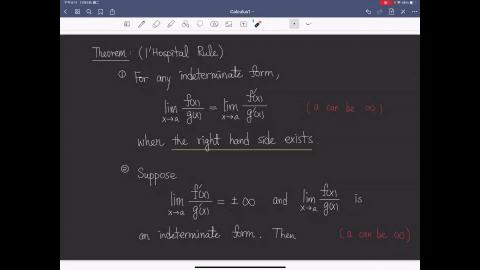 Calculus1
Theorem : (l'Hospital Rule)
① For any indeterminate form,
lim x→a f(x)/g(x) = lim x→a f'(x)/g'(x) (a can be ∞)
when the right hand side exists.
② Suppose
lim x→a f'(x)/g'(x) = ± ∞ and lim x→a f(x)/g(x) is
an indeterminate form. Then (a can be ∞)